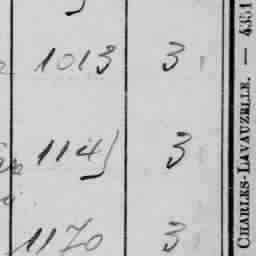 1013 3
1145 3
1170 3
CHARLES-LAVAUZELLE. — 4351